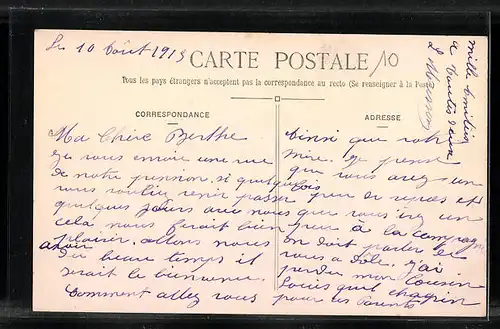 Le 10 Août 1913
CARTE POSTALE
10
Tous les pays étrangers n'acceptent pas la correspondance au recto (Se renseigner à la Poste)
CORRESPONDANCE
Ma Chère Berthe
je vous envoie une vue
de notre pension si quelquefois
vous vouliez venir passer
quelques jours avec nous
cela nous ferait bien
plaisir. allons nous
avoir
du beau temps il
serait le bienvenu.
Comment allez vous
ADRESSE
Ainsi que votre
mère. Je pense
que vous avez un
peu de repos et
que vous irez un
peu à la campagne
on doit parler de
vous a Dôle. j'ai
perdu mon cousin
Louis quel chagrin
pour les Parents
mille amitiés
a toutes deux